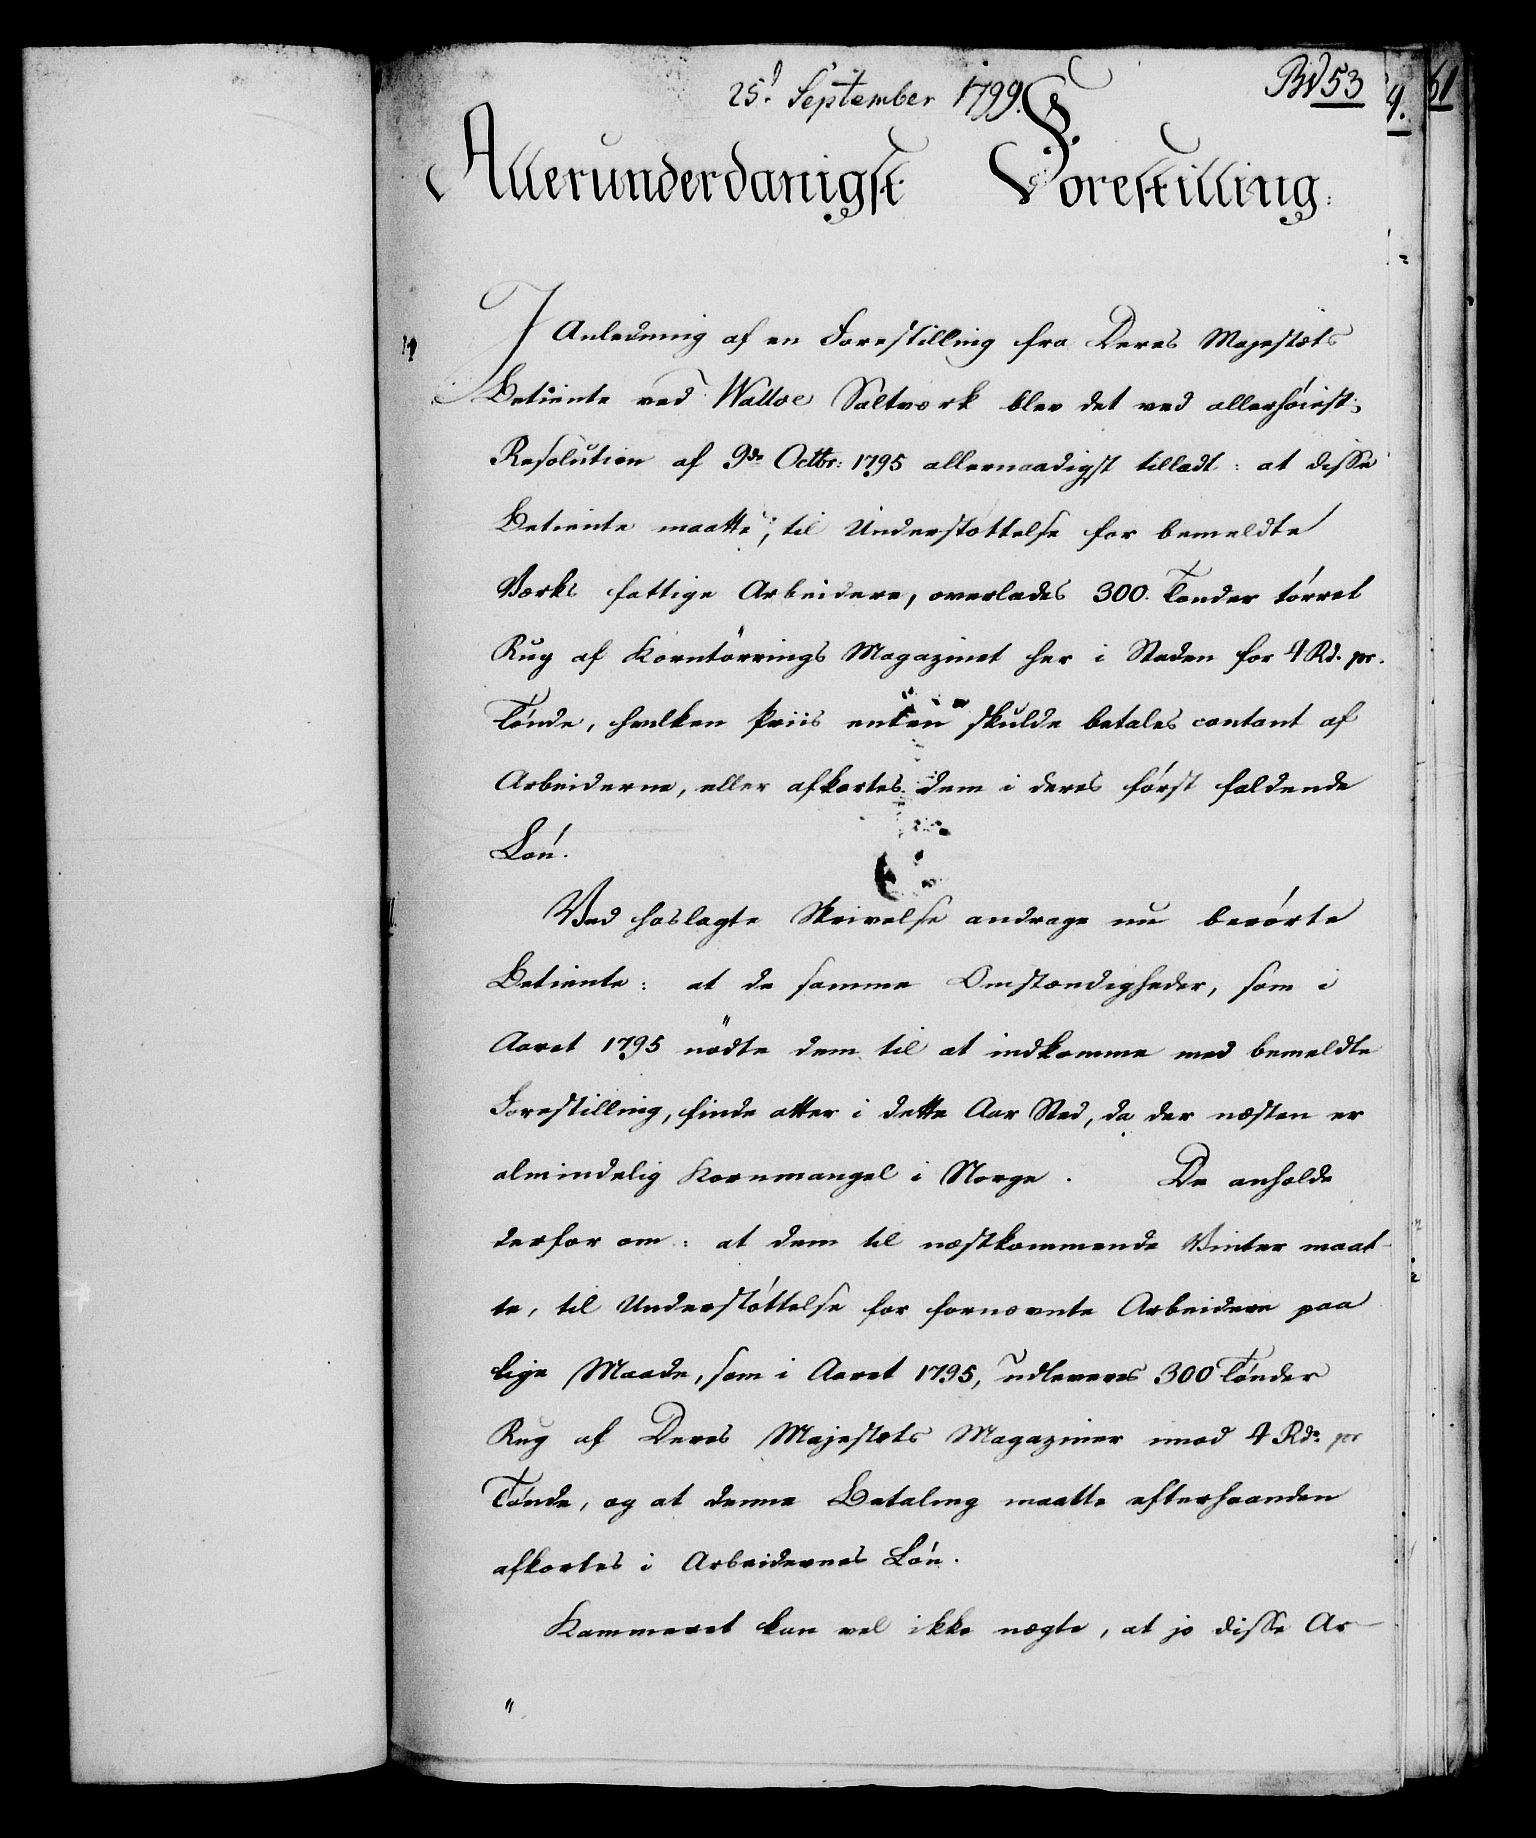 25d September 1799.
Bd 53
4.
61
Allerunderdanigst Forestilling.
I Anledning af en Forestilling fra Deres Majestæts
Betiente ved Walløe Saltværk blev det ved allerhöiest
Resolution af 9de Octbr: 1795 allernaadigst tilladt: at disse
Betiente maatte, til Understøttelse for bemeldte
Værks fattige Arbeidere, overlades 300 Tønder tørret
Rug af Korntörrings Magazinet her i Staden for 4 Rd. pr.
Tönde, hvilken Priis enten skulde betales contant af
Arbeiderne, eller afkortes dem i deres först faldende
Lön.
Ved hoslagte Skrivelse andrage nu berörte
Betiente: at de samme Omstændigheder, som i
Aaret 1795 nödte dem til at indkomme med bemeldte
Forestilling, finde atter i dette Aar Sted, da der næsten er
almindelig Kornmangel i Norge. De anholde
derfor om: at dem til næstkommende Vinter maat-
te, til Understöttelse for fornævnte Arbeidere paa
lige Maade, som i Aaret 1795, udleveres 300 Tönder
Rug af Deres Majestæts Magaziner imod 4 Rdr pr
Tönde, og at denne Betaling maatte efterhaanden
afkortes i Arbeidernes Lön.
Kammeret kan vel ikke nægte, at jo disse Ar-